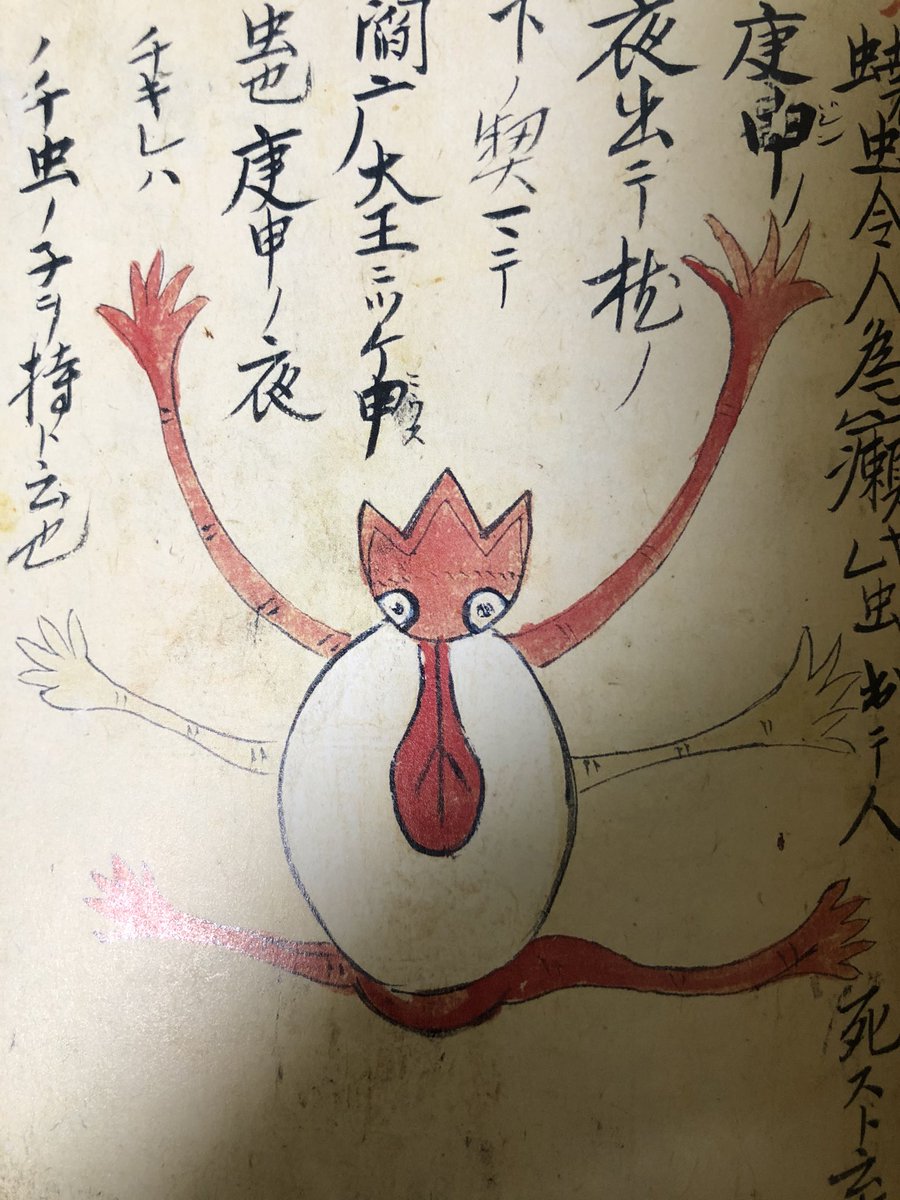 蟯虫令人為癩此虫出テ人死スト云
庚申ノ
夜出テ枕ノ
下ノ契マテ
閻广大王ニツケ申
虫也庚申ノ夜
チキレハ
ノチ虫ノ子ヲ持ト云也